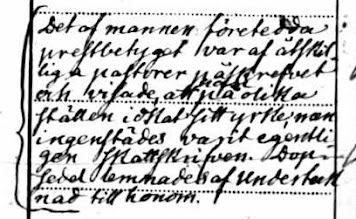 Det af mannen företedda
prestbetyget var af åtskil-
liga pastorer påskrefvet
och visade, att på olika
ställen idkat sitt yrke, men
ingenstädes varit egentli-
gen Skattskrifven. Dop-
sedel lemnades af Underteck
nad till honom.